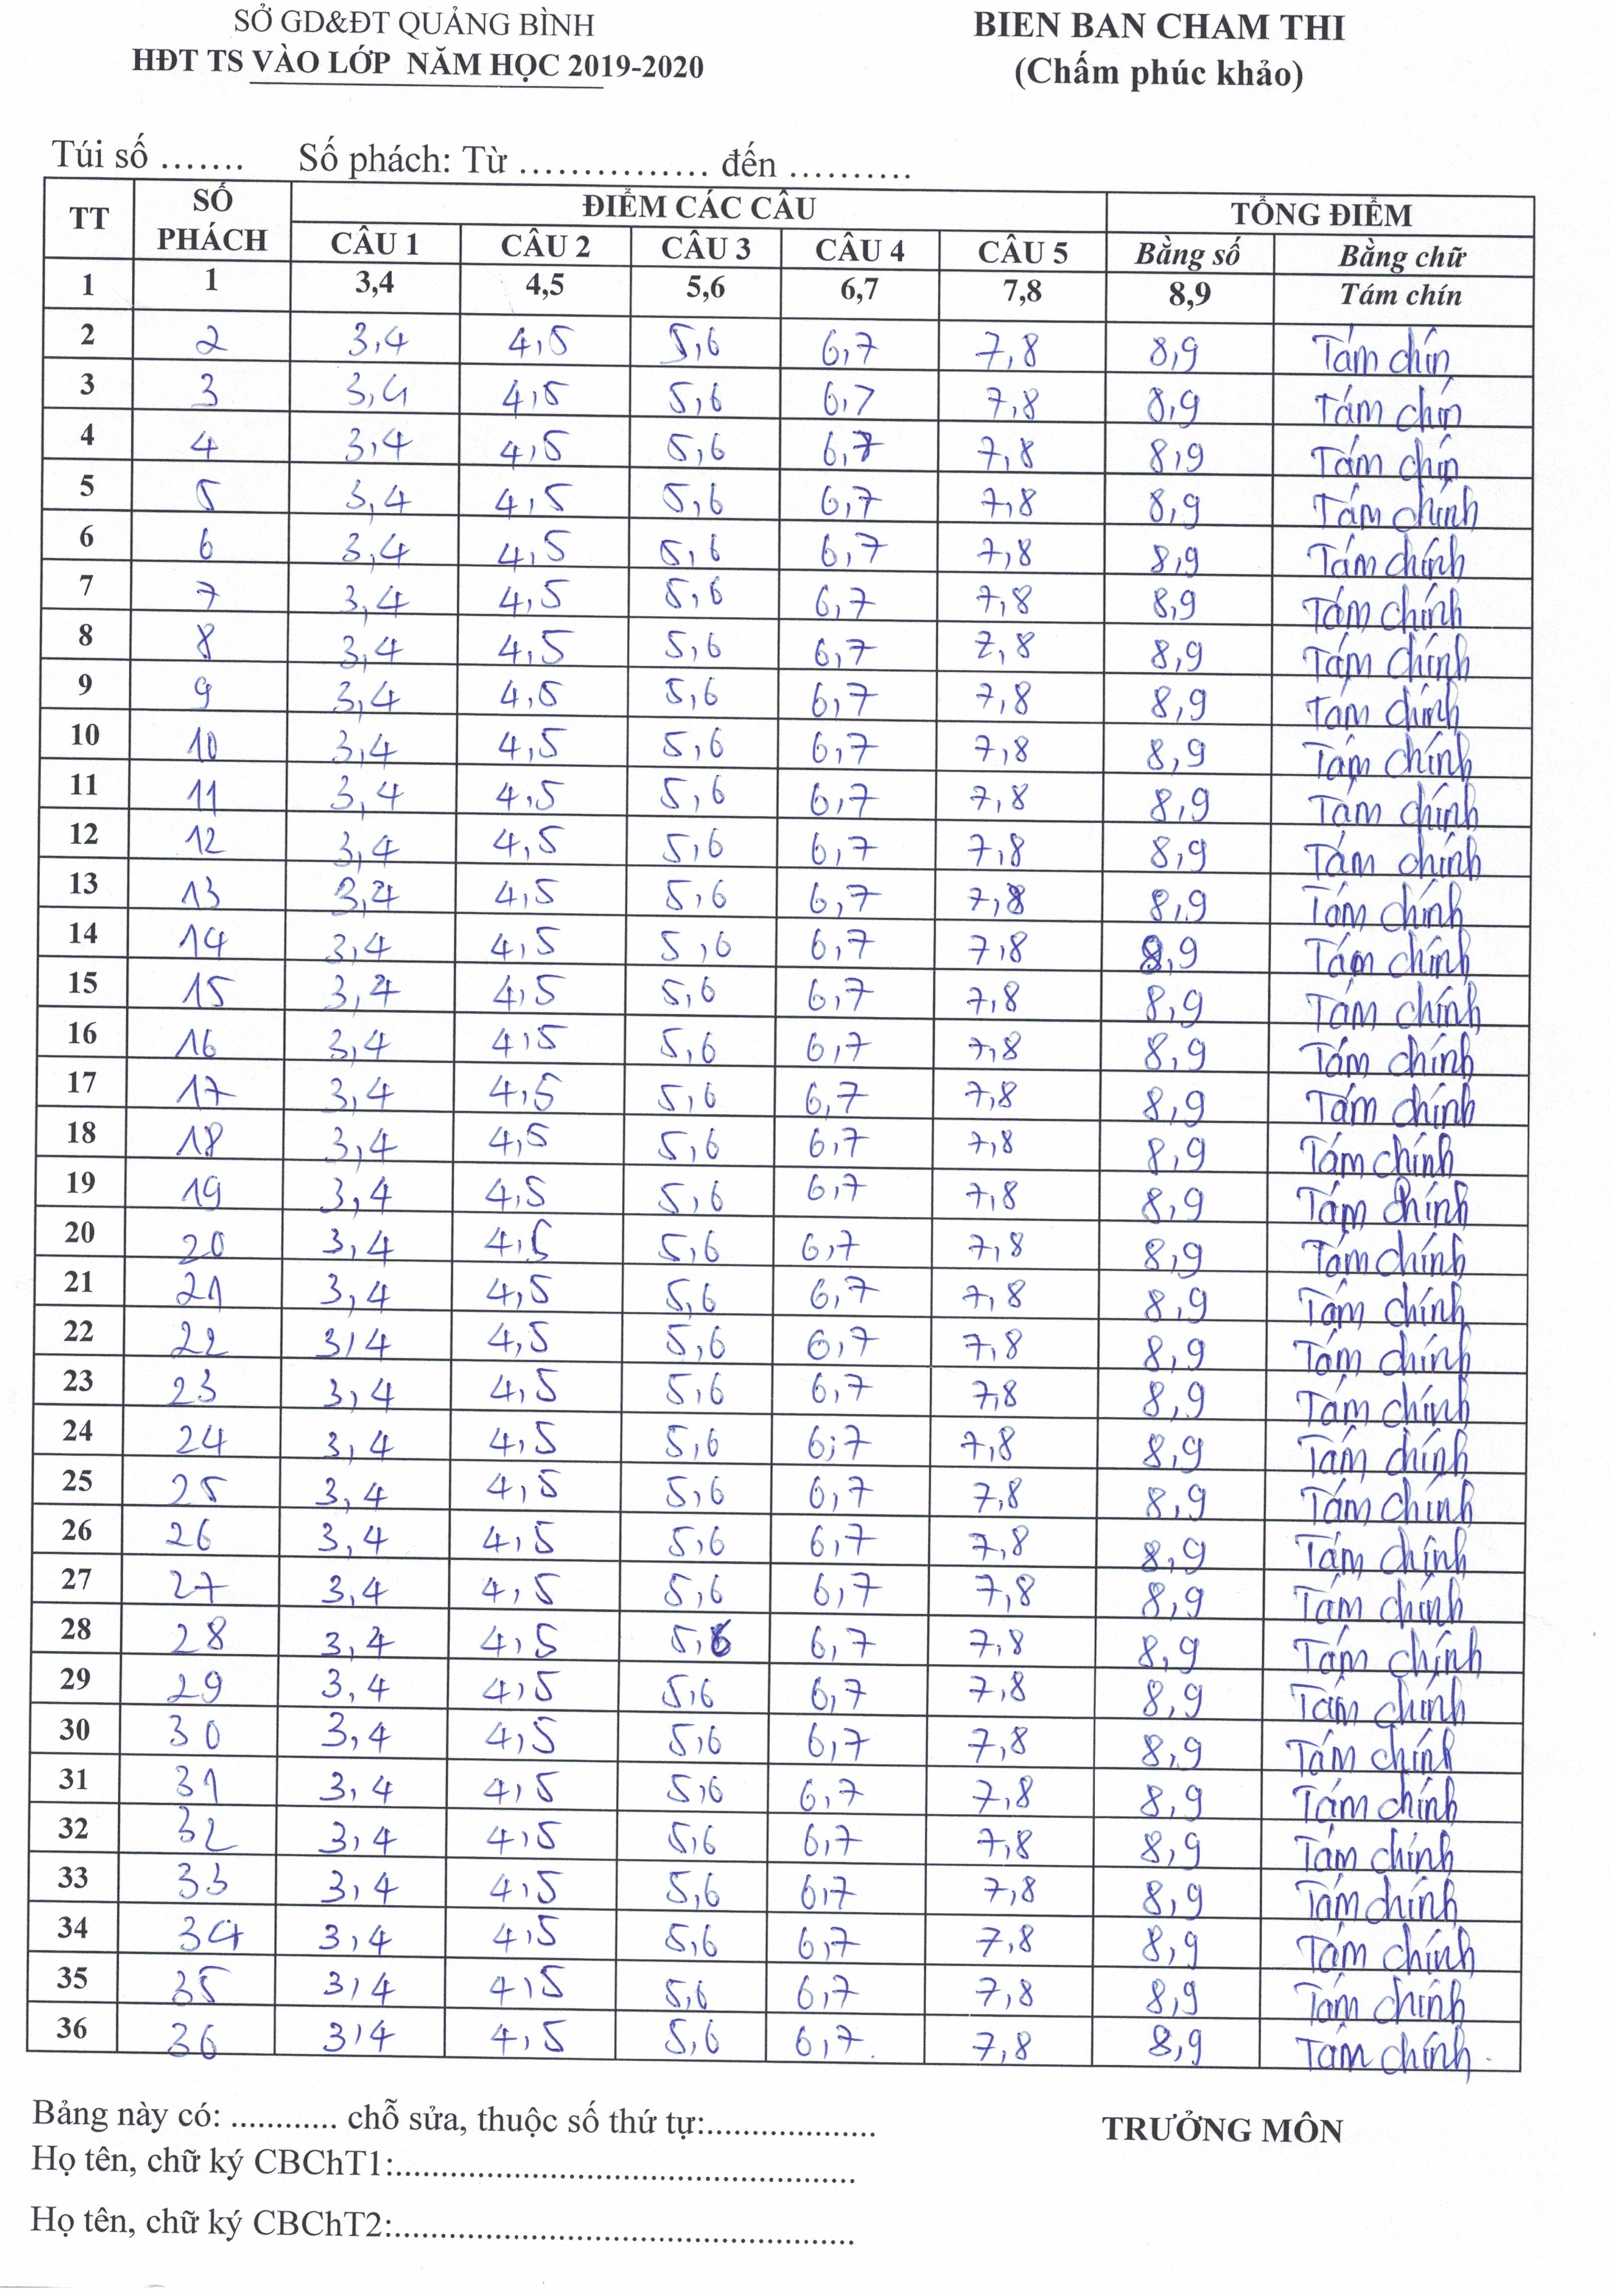 SỞ GD&ĐT QUẢNG BÌNH
HĐT TS VÀO LỚP NĂM HỌC 2019-2020
BIEN BAN CHAM THI
(Chấm phúc khảo)
Túi số ....... Số phách: Từ ............... đến ..........
TT SỐ PHÁCH ĐIỂM CÁC CÂU TỔNG ĐIỂM
CÂU 1 CÂU 2 CÂU 3 CÂU 4 CÂU 5 Bằng số Bằng chữ
1 1 3,4 4,5 5,6 6,7 7,8 8,9 Tám chín
2 2 3,4 4,5 5,6 6,7 7,8 8,9 Tám chín
3 3 3,4 4,5 5,6 6,7 7,8 8,9 Tám chín
4 4 3,4 4,5 5,6 6,7 7,8 8,9 Tám chín
5 5 3,4 4,5 5,6 6,7 7,8 8,9 Tám chính
6 6 3,4 4,5 5,6 6,7 7,8 8,9 Tám chính
7 7 3,4 4,5 5,6 6,7 7,8 8,9 Tám chính
8 8 3,4 4,5 5,6 6,7 7,8 8,9 Tám chính
9 9 3,4 4,5 5,6 6,7 7,8 8,9 Tám chính
10 10 3,4 4,5 5,6 6,7 7,8 8,9 Tám chính
11 11 3,4 4,5 5,6 6,7 7,8 8,9 Tám chính
12 12 3,4 4,5 5,6 6,7 7,8 8,9 Tám chính
13 13 3,4 4,5 5,6 6,7 7,8 8,9 Tám chính
14 14 3,4 4,5 5,6 6,7 7,8 8,9 Tám chính
15 15 3,4 4,5 5,6 6,7 7,8 8,9 Tám chính
16 16 3,4 4,5 5,6 6,7 7,8 8,9 Tám chính
17 17 3,4 4,5 5,6 6,7 7,8 8,9 Tám chính
18 18 3,4 4,5 5,6 6,7 7,8 8,9 Tám chính
19 19 3,4 4,5 5,6 6,7 7,8 8,9 Tám chính
20 20 3,4 4,5 5,6 6,7 7,8 8,9 Tám chính
21 21 3,4 4,5 5,6 6,7 7,8 8,9 Tám chính
22 22 3,4 4,5 5,6 6,7 7,8 8,9 Tám chính
23 23 3,4 4,5 5,6 6,7 7,8 8,9 Tám chính
24 24 3,4 4,5 5,6 6,7 7,8 8,9 Tám chính
25 25 3,4 4,5 5,6 6,7 7,8 8,9 Tám chính
26 26 3,4 4,5 5,6 6,7 7,8 8,9 Tám chính
27 27 3,4 4,5 5,6 6,7 7,8 8,9 Tám chính
28 28 3,4 4,5 5,6 6,7 7,8 8,9 Tám chính
29 29 3,4 4,5 5,6 6,7 7,8 8,9 Tám chính
30 30 3,4 4,5 5,6 6,7 7,8 8,9 Tám chính
31 31 3,4 4,5 5,6 6,7 7,8 8,9 Tám chính
32 32 3,4 4,5 5,6 6,7 7,8 8,9 Tám chính
33 33 3,4 4,5 5,6 6,7 7,8 8,9 Tám chính
34 34 3,4 4,5 5,6 6,7 7,8 8,9 Tám chính
35 35 3,4 4,5 5,6 6,7 7,8 8,9 Tám chính
36 36 3,4 4,5 5,6 6,7 7,8 8,9 Tám chính
Bảng này có: ............ chỗ sửa, thuộc số thứ tự:...................
TRƯỞNG MÔN
Họ tên, chữ ký CBChT1:...................................................
Họ tên, chữ ký CBChT2:...................................................